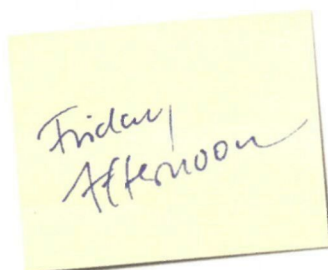 Friday
Afternoon